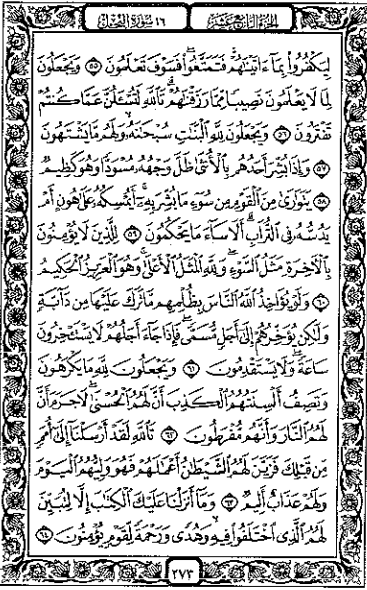 الجزء الرابع عشر
١٦ سورة النحل
لِيَكْفُرُوا۟ بِمَآ ءَاتَيْنَٰهُمْ ۚ فَتَمَتَّعُوا۟ ۖ فَسَوْفَ تَعْلَمُونَ ٥٥ وَيَجْعَلُونَ
لِمَا لَا يَعْلَمُونَ نَصِيبًا مِّمَّا رَزَقْنَٰهُمْ ۗ تَٱللَّهِ لَتُسْـَٔلُنَّ عَمَّا كُنتُمْ
تَفْتَرُونَ ٥٦ وَيَجْعَلُونَ لِلَّهِ ٱلْبَنَٰتِ سُبْحَٰنَهُۥ ۙ وَلَهُم مَّا يَشْتَهُونَ
٥٧ وَإِذَا بُشِّرَ أَحَدُهُم بِٱلْأُنثَىٰ ظَلَّ وَجْهُهُۥ مُسْوَدًّا وَهُوَ كَظِيمٌ
٥٨ يَتَوَٰرَىٰ مِنَ ٱلْقَوْمِ مِن سُوٓءِ مَا بُشِّرَ بِهِۦٓ ۚ أَيُمْسِكُهُۥ عَلَىٰ هُونٍ أَمْ
يَدُسُّهُۥ فِى ٱلتُّرَابِ ۗ أَلَا سَآءَ مَا يَحْكُمُونَ ٥٩ لِلَّذِينَ لَا يُؤْمِنُونَ
بِٱلْـَٔاخِرَةِ مَثَلُ ٱلسَّوْءِ ۖ وَلِلَّهِ ٱلْمَثَلُ ٱلْأَعْلَىٰ ۚ وَهُوَ ٱلْعَزِيزُ ٱلْحَكِيمُ
٦٠ وَلَوْ يُؤَاخِذُ ٱللَّهُ ٱلنَّاسَ بِظُلْمِهِم مَّا تَرَكَ عَلَيْهَا مِن دَآبَّةٍ
وَلَٰكِن يُؤَخِّرُهُمْ إِلَىٰٓ أَجَلٍ مُّسَمًّى ۖ فَإِذَا جَآءَ أَجَلُهُمْ لَا يَسْتَـْٔخِرُونَ
سَاعَةً ۖ وَلَا يَسْتَقْدِمُونَ ٦١ وَيَجْعَلُونَ لِلَّهِ مَا يَكْرَهُونَ
وَتَصِفُ أَلْسِنَتُهُمُ ٱلْكَذِبَ أَنَّ لَهُمُ ٱلْحُسْنَىٰ ۖ لَا جَرَمَ أَنَّ
لَهُمُ ٱلنَّارَ وَأَنَّهُم مُّفْرَطُونَ ٦٢ تَٱللَّهِ لَقَدْ أَرْسَلْنَآ إِلَىٰٓ أُمَمٍ
مِّن قَبْلِكَ فَزَيَّنَ لَهُمُ ٱلشَّيْطَٰنُ أَعْمَٰلَهُمْ فَهُوَ وَلِيُّهُمُ ٱلْيَوْمَ
وَلَهُمْ عَذَابٌ أَلِيمٌ ٦٣ وَمَآ أَنزَلْنَا عَلَيْكَ ٱلْكِتَٰبَ إِلَّا لِتُبَيِّنَ
لَهُمُ ٱلَّذِى ٱخْتَلَفُوا۟ فِيهِ ۙ وَهُدًى وَرَحْمَةً لِّقَوْمٍ يُؤْمِنُونَ ٦٤
٢٧٣